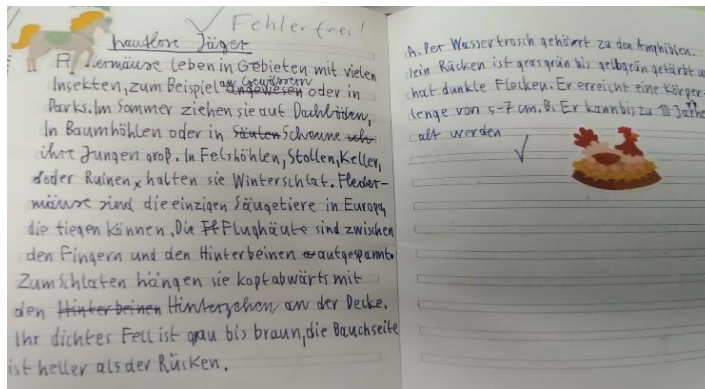 Fehlerfrei!
Lautlose Jäger
Fledermäuse leben in Gebieten mit vielen
Insekten, zum Beispiel an Gewässern oder in
Parks. Im Sommer ziehen sie auf Dachböden,
In Baumhöhlen oder in Scheune
ihre Jungen groß. In Felshöhlen, Stollen, Keller,
oder Ruinen halten sie Winterschlaf. Fleder-
mäuse sind die einzigen Säugetiere in Europa,
die fliegen können. Die Flughäute sind zwischen
den Fingern und den Hinterbeinen aufgespannt.
Zum Schlafen hängen sie kopfabwärts mit
den Hinterzehen an der Decke.
Ihr dichtes Fell ist grau bis braun, die Bauchseite
ist heller als der Rücken.
A. Der Wasserfrosch gehört zu den Amphibien.
Sein Rücken ist grasgrün bis gelbgrün gefärbt u
hat dunkle Flecken. Er erreicht eine Körper-
lenge von 5-7 cm. B. Er kann bis zu 10 Jahre
alt werden